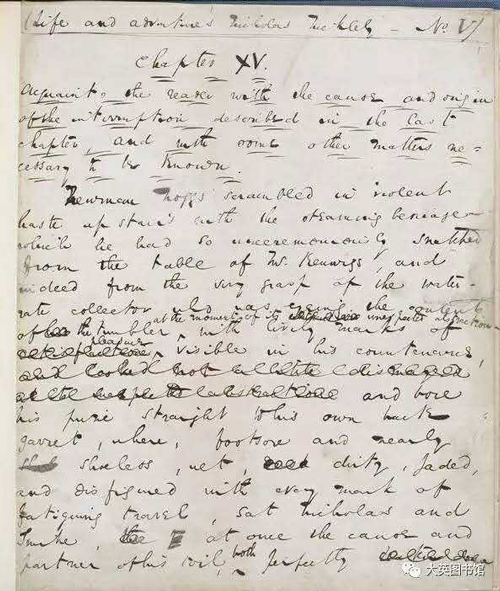 (Life and adventures Nicholas Nickleby — No. V)
Chapter XV.
Acquaints the reader with the cause and origin
of the interruption described in the last
chapter, and with some other matters ne-
cessary to be known.
Newman Noggs scrambled in violent
haste up stairs with the steaming beverage
which he had so unceremoniously snatched
from the table of Mr. Kenwigs, and
indeed from the very grasp of the water-
rate collector who was eyeing the contents
of the tumbler, at the moment of its unexpected abstraction
with lively marks of
pleasure visible in his countenance,
and bore
his prize straight to his own back
garret, where, footsore and nearly
shoeless, wet, dirty, jaded,
and disfigured with every mark of
fatiguing travel, sat Nicholas and
Smike, at once the cause and
partner of his toil, both perfectly
大英图书馆